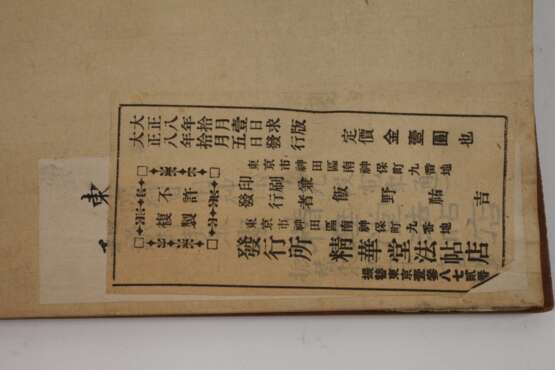 大正八年拾月壹日求版
大正八年拾月五日發行
定價金壹圓也
東京市神田區南神保町九番地
發行兼印刷者 飯野 吉
不許複製
東京市神田區南神保町九番地
發行所 精華堂法帖店
振替東京壹參八七貳番
東